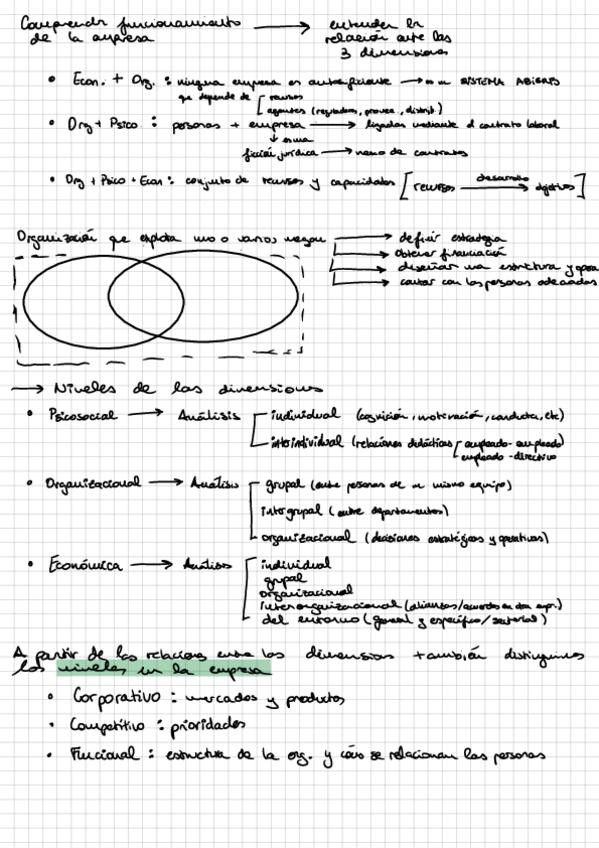 Comprender funcionamiento de la empresa → entender la relación entre las 3 dimensiones
• Econ. + Org. : ninguna empresa es autosuficiente → es un SISTEMA ABIERTO
que depende de [ recursos
agentes (reguladores, provee, distrib)
• Org + Psico : personas + empresa → ligadas mediante el contrato laboral
↓ es una
ficción jurídica → nexo de contratos
• Org + Psico + Econ : conjunto de recursos y capacidades [recursos → desarrollo objetivos]
Organización que explota uno o varios negocios → definir estrategia
→ obtener financiación
→ diseñar una estructura y
→ contar con las personas adecuadas
→ Niveles de las dimensiones
• Psicosocial → Análisis individual (cognición, motivación, conducta, etc)
interindividual (relaciones [ empleado - empleado)
empleado - directivo
• Organizacional → Análisis grupal (entre personas de un mismo equipo)
intergrupal (entre departamentos)
organizacional (decisiones estratégicas y operativas)
• Económica → Análisis individual
grupal
organizacional
interorganizacional (alianzas/acuerdos en otra empr.)
del entorno (general y específico/sectorial)
A partir de las relaciones entre las dimensiones también distinguimos
los niveles en la empresa
• Corporativo : mercados y productos
• Competitivo : prioridades
• Funcional : estructura de la org. y cómo se relacionan las personas